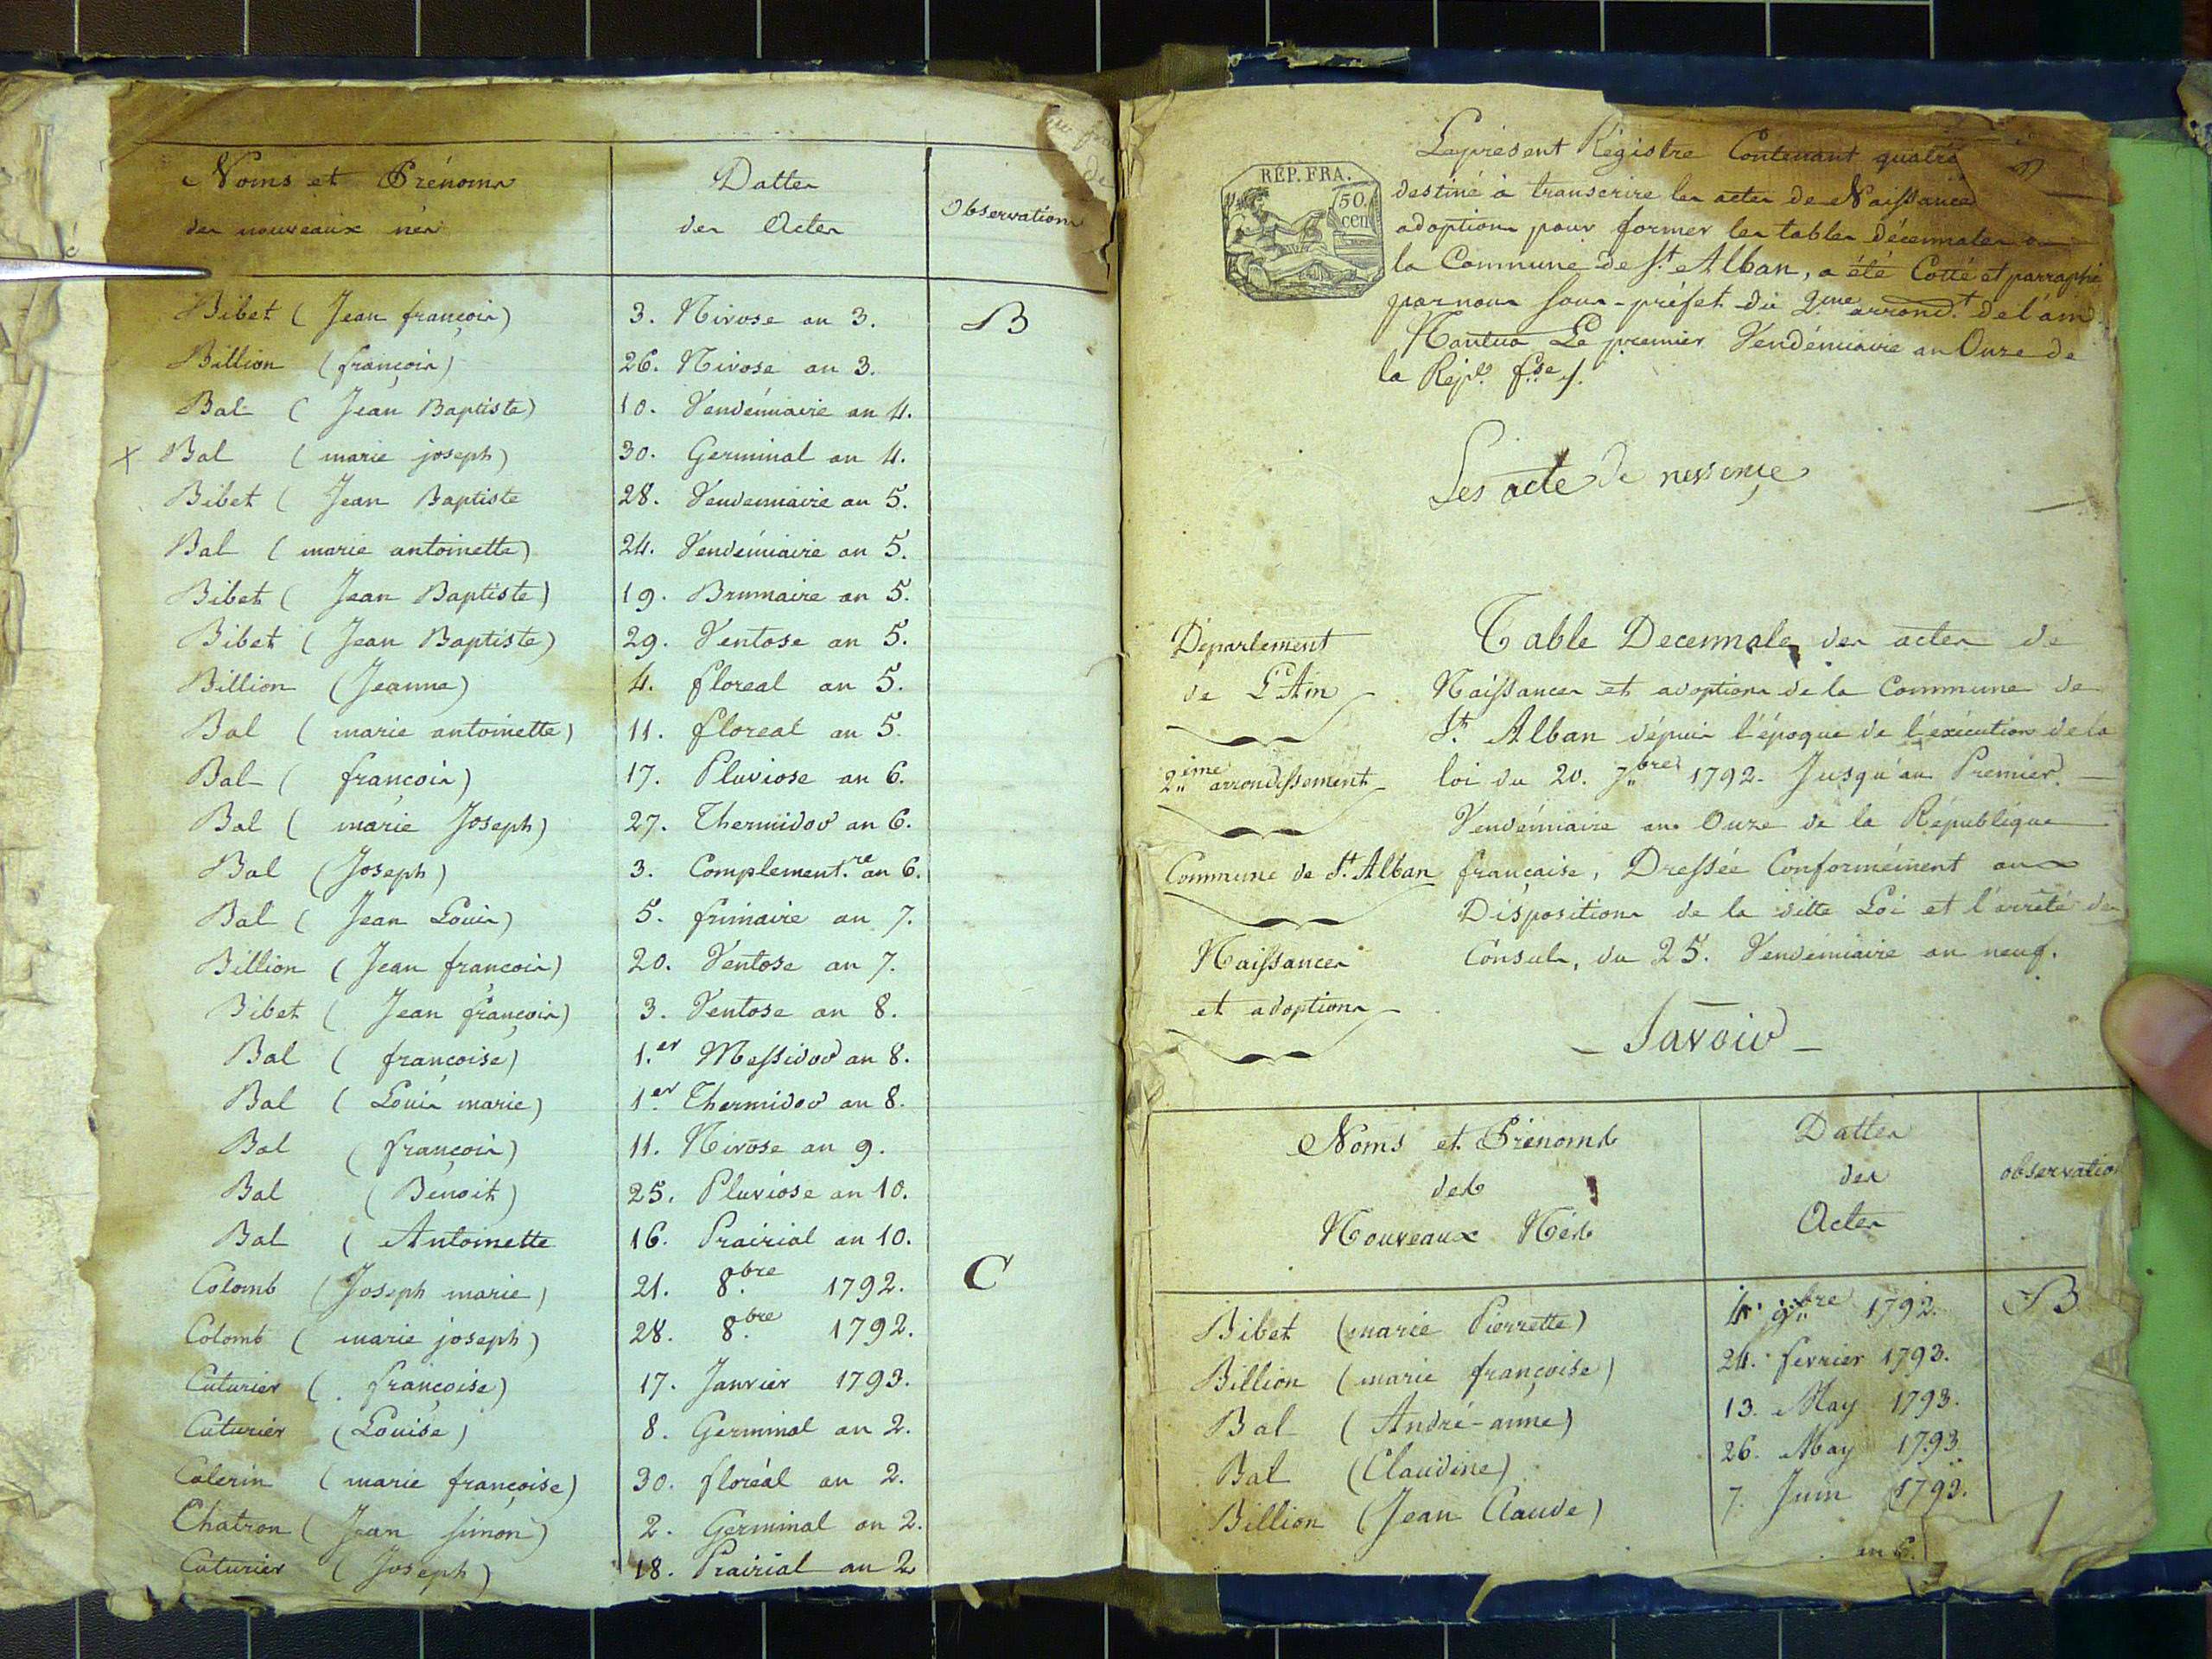 Noms et Prénoms
des nouveaux nés
Dattes
des Actes
Observations
Bibet ( Jean françois) 3. Nivose an 3. B
Billion (françois) 26. Nivose an 3.
Bal ( Jean Baptiste) 10. Vendémiaire an 4.
x Bal ( marie joseph) 30. Germinal an 4.
Bibet ( Jean Baptiste 28. Vendemiaire an 5.
Bal ( marie antoinette) 24. Vendémiaire an 5.
Bibet ( Jean Baptiste) 19. Brumaire an 5.
Bibet ( Jean Baptiste) 29. Ventose an 5.
Billion (Jeanne) 4. floreal an 5.
Bal ( marie antoinette) 11. floreal an 5.
Bal ( françois) 17. Pluviose an 6.
Bal ( marie Joseph) 27. Thermidor an 6.
Bal (Joseph) 3. Complement.re an 6.
Bal ( Jean Louis) 5. frimaire an 7.
Billion ( Jean françois) 20. Ventose an 7.
Bibet ( Jean françois) 3. Ventose an 8.
Bal ( françoise) 1.er Messidor an 8.
Bal ( Louis marie) 1er. Thermidor an 8.
Bal ( françois) 11. Nivose an 9.
Bal ( Benoit) 25. Pluviose an 10.
Bal ( Antoinette 16. Prairial an 10.
Colomb (Joseph marie) 21. 8.bre 1792. C
Colomb ( marie joseph) 28. 8.bre 1792.
Cuturier ( françoise) 17. Janvier 1793.
Cuturier (Louise) 8. Germinal an 2.
Calerin ( marie françoise) 30. floréal an 2.
Chatron ( Jean simon) 2. Germinal an 2.
Cuturier ( Joseph) 18. Prairial an 2
RÉP. FRA.
50.
cen
Le present Régistre Contenant quatre
destiné à transcrire les actes de Naissance
adoptions pour former les tables décennales
la Commune de St. Alban, a été Cotté et parraphé
par nous sous-préfet du 2.me arrond.t de l'ain
Nantua Le premier Vendémiaire an Onze de
la Rép.e f.se ./.
Les acte de nessençe
Département
de L'Ain
2.ème arrondissement
Commune de St. Alban
Naissances
et adoptions
Table Decennale des actes de
Naissances et adoptions de la Commune de
St. Alban dépuis l'époque de l'éxécution de la
loi du 20. 7.bre 1792. Jusqu'au Premier
Vendémiaire an Onze de la République
française, Dressée Conformément aux
Dispositions de la ditte Loi et l'arrêté des
Consuls, du 25. Vendémiaire an neuf.
- Savoir -
Noms et Prénoms
des
Nouveaux Nés
Dattes
des
Actes
observation
Bibet (marie Pierrette) 4. 9.bre 1792. B
Billion (marie françoise) 24. fevrier 1793.
Bal ( André-anne) 13. May 1793.
Bal (Claudine) 26. May 1793.
Billion (Jean Claude) 7. Juin 1793.
an 6.